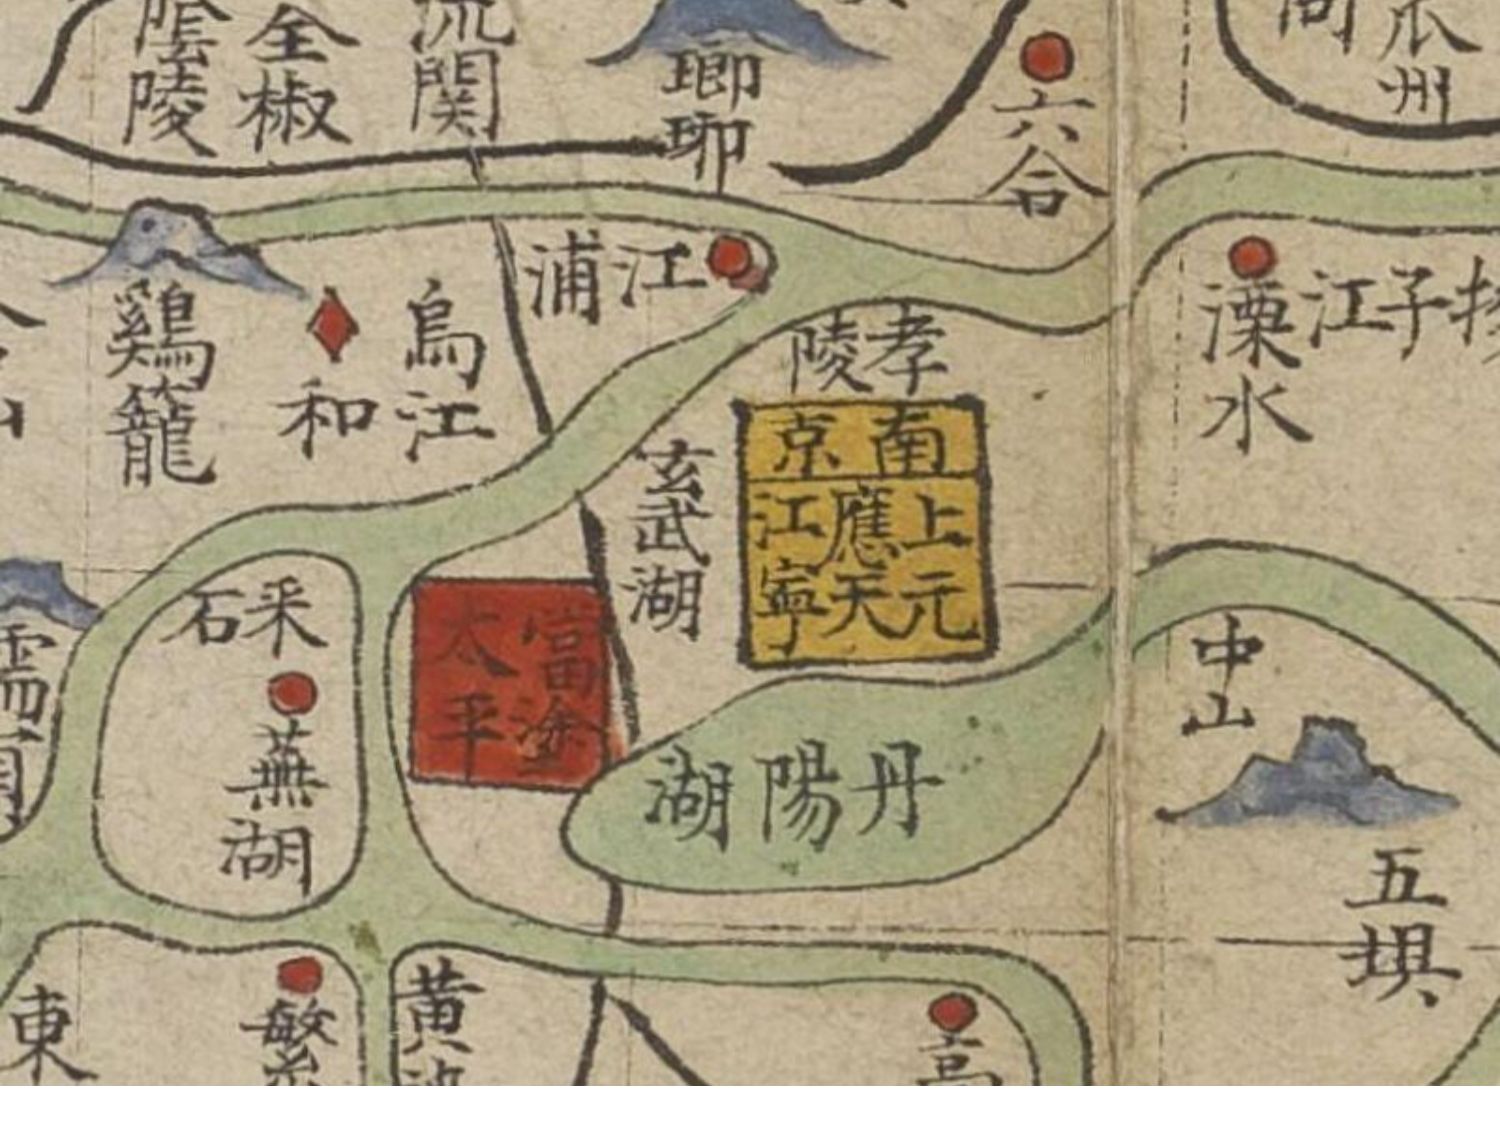 瓜州
六合
瑯琊
關
全椒
陰陵
揚子江
溧水
江浦
孝陵
南京
上元
應天
江寧
玄武湖
烏江
和
鷄籠
中山
五堌
丹陽湖
當塗
太平
采石
蕪湖
高
黃
繁
東